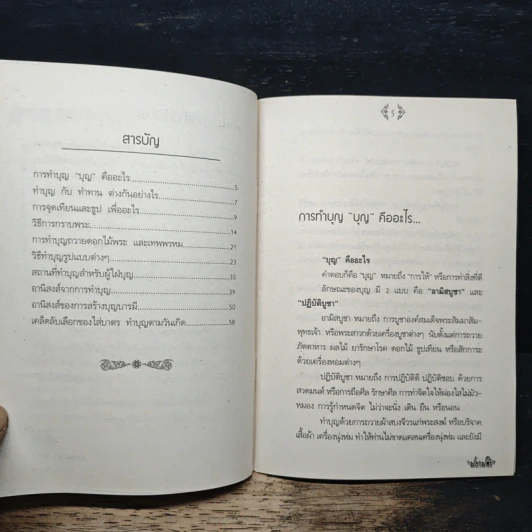 สารบัญ
การทำบุญ "บุญ" คืออะไร...................5
ทำบุญ กับ ทำทาน ต่างกันอย่างไร...................7
การจุดเทียนและธูป เพื่ออะไร...................9
วิธีการกราบพระ...................14
การทำบุญถวายดอกไม้พระ และเทพพรหม...................21
วิธีทำบุญรูปแบบต่างๆ...................23
สถานที่ทำบุญสำหรับผู้ใฝ่บุญ...................35
อานิสงส์จากการทำบุญ...................39
อานิสงส์ของการสร้างบุญบารมี...................50
เคล็ดลับเลือกของใส่บาตร ทำบุญตามวันเกิด...................58
5
การทำบุญ "บุญ" คืออะไร...
"บุญ" คืออะไร
คำตอบก็คือ "บุญ" หมายถึง "การให้" หรือการทำสิ่งที่ดี
ลักษณะของบุญ มี 2 แบบ คือ "อามิสบูชา" และ
"ปฏิบัติบูชา"
อามิสบูชา หมายถึง การบูชาองค์สมเด็จพระสัมมาสัม-
พุทธเจ้า หรือพระสาวกด้วยเครื่องบูชาต่างๆ นับตั้งแต่การถวาย
ภัตตาหาร ผลไม้ ยารักษาโรค ดอกไม้ ธูปเทียน หรือสักการะ
ด้วยเครื่องหอมต่างๆ
ปฏิบัติบูชา หมายถึง การปฏิบัติดี ปฏิบัติชอบ ด้วยการ
สวดมนต์ หรือการถือศีล รักษาศีล การทำจิตใจให้ผ่องใสไม่มัว-
หมอง การรู้กำหนดจิต ไม่ว่าจะนั่ง เดิน ยืน หรือนอน
ทำบุญด้วยการถวายผ้าสบงจีวรแก่พระสงฆ์ หรือบริจาค
เสื้อผ้า เครื่องนุ่งห่ม ทำให้ท่านไม่ขาดแคลนเครื่องนุ่งห่ม และยังมี